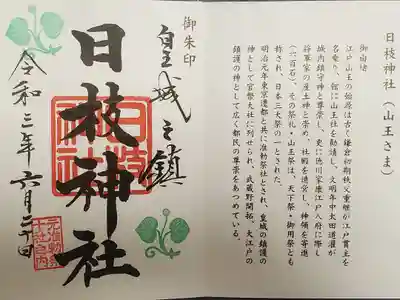 日枝神社(山王さま)
御由緒
江戸山王の始原は古く鎌倉初期秩父重継が江戸貫主を
名乗り、館に山王社を勧請し、文明年中太田道灌が
城内鎮守神と尊崇し、更に徳川家康江戸入府に際し
将軍家の産土神と崇め、社殿を造営し、神領を寄進
(六百石)、その祭礼・山王祭は、天下祭・御用祭とも
称され、日本三大祭の一とされた。
明治元年東京遷都と共に准勅祭社とされ、皇城の鎮護の
神として官幣大社に列せられ、武蔵野開拓、大江戸の
鎮護の神として広く都民の尊崇をあつめている。
御朱印
皇城之鎮
日枝神社
日枝神社
令和三年六月二十日
十社之内